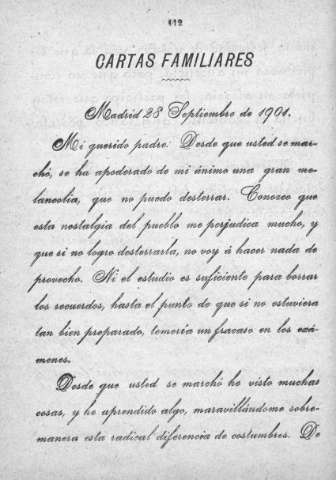 112
CARTAS FAMILIARES
Madrid 28 Septiembre de 1901.
Mi querido padre: Desde que usted se mar-
chó, se ha apoderado de mi ánimo una gran me-
lancolía, que no puedo desterrar. Conozco que
esta nostalgia del pueblo me perjudica mucho, y
que si no logro desterrarla, no voy á hacer nada de
provecho. Ni el estudio es suficiente para borrar
los recuerdos, hasta el punto de que si no estuviera
tan bien preparado, temería un fracaso en los exá-
menes.
Desde que usted se marchó he visto muchas
cosas, y he aprendido algo, maravillándome sobre-
manera esta radical diferencia de costumbres. De